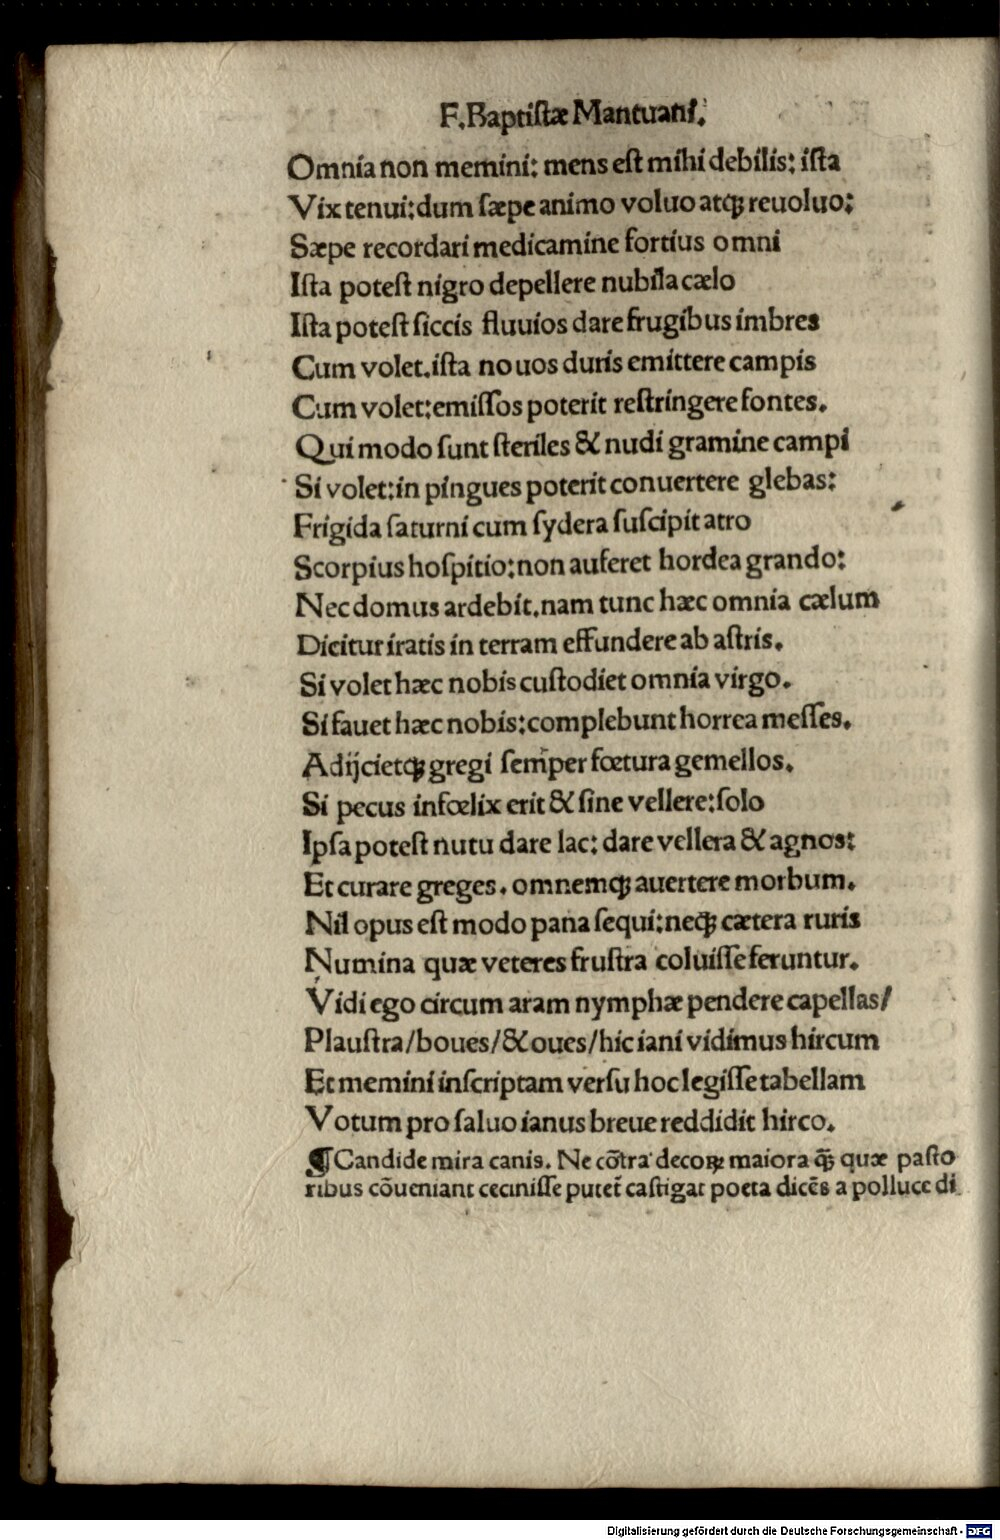 F. Baptistæ Mantuani.
Omnia non memini: mens est mihi debilis: ista
Vix tenui: dum sæpe animo voluo atqꝫ reuoluo:
Sæpe recordari medicamine fortius omni
Ista potest nigro depellere nubila cælo
Ista potest siccis fluuios dare frugibus imbres
Cum volet. ista nouos duris emittere campis
Cum volet: emissos poterit restringere fontes.
Qui modo sunt steriles & nudi gramine campi
Si volet: in pingues poterit conuertere glebas:
Frigida saturni cum sydera suscipit atro
Scorpius hospitio: non auferet hordea grando:
Nec domus ardebit. nam tunc hæc omnia cælum
Dicitur iratis in terram effundere ab astris.
Si volet hæc nobis custodiet omnia virgo.
Si fauet hæc nobis: complebunt horrea messes.
Adijcietqꝫ gregi semper fœtura gemellos.
Si pecus infœlix erit & sine vellere: solo
Ipsa potest nutu dare lac: dare vellera & agnos:
Et curare greges. omnemqꝫ auertere morbum.
Nil opus est modo pana sequi: neqꝫ cætera ruris
Numina quæ veteres frustra coluisse feruntur.
Vidi ego circum aram nymphæ pendere capellas/
Plaustra/boues/& oues/hic iani vidimus hircum
Et memini inscriptam versu hoc legisse tabellam
Votum pro saluo ianus breue reddidit hirco.
¶Candide mira canis. Ne cõtra decoꝝ maiora qꝫ̃ quæ pasto
ribus cõueniant cecinisse putet̃ castigat poeta dicẽs a polluce di
Digitalisierung gefördert durch die Deutsche Forschungsgemeinschaft - DFG